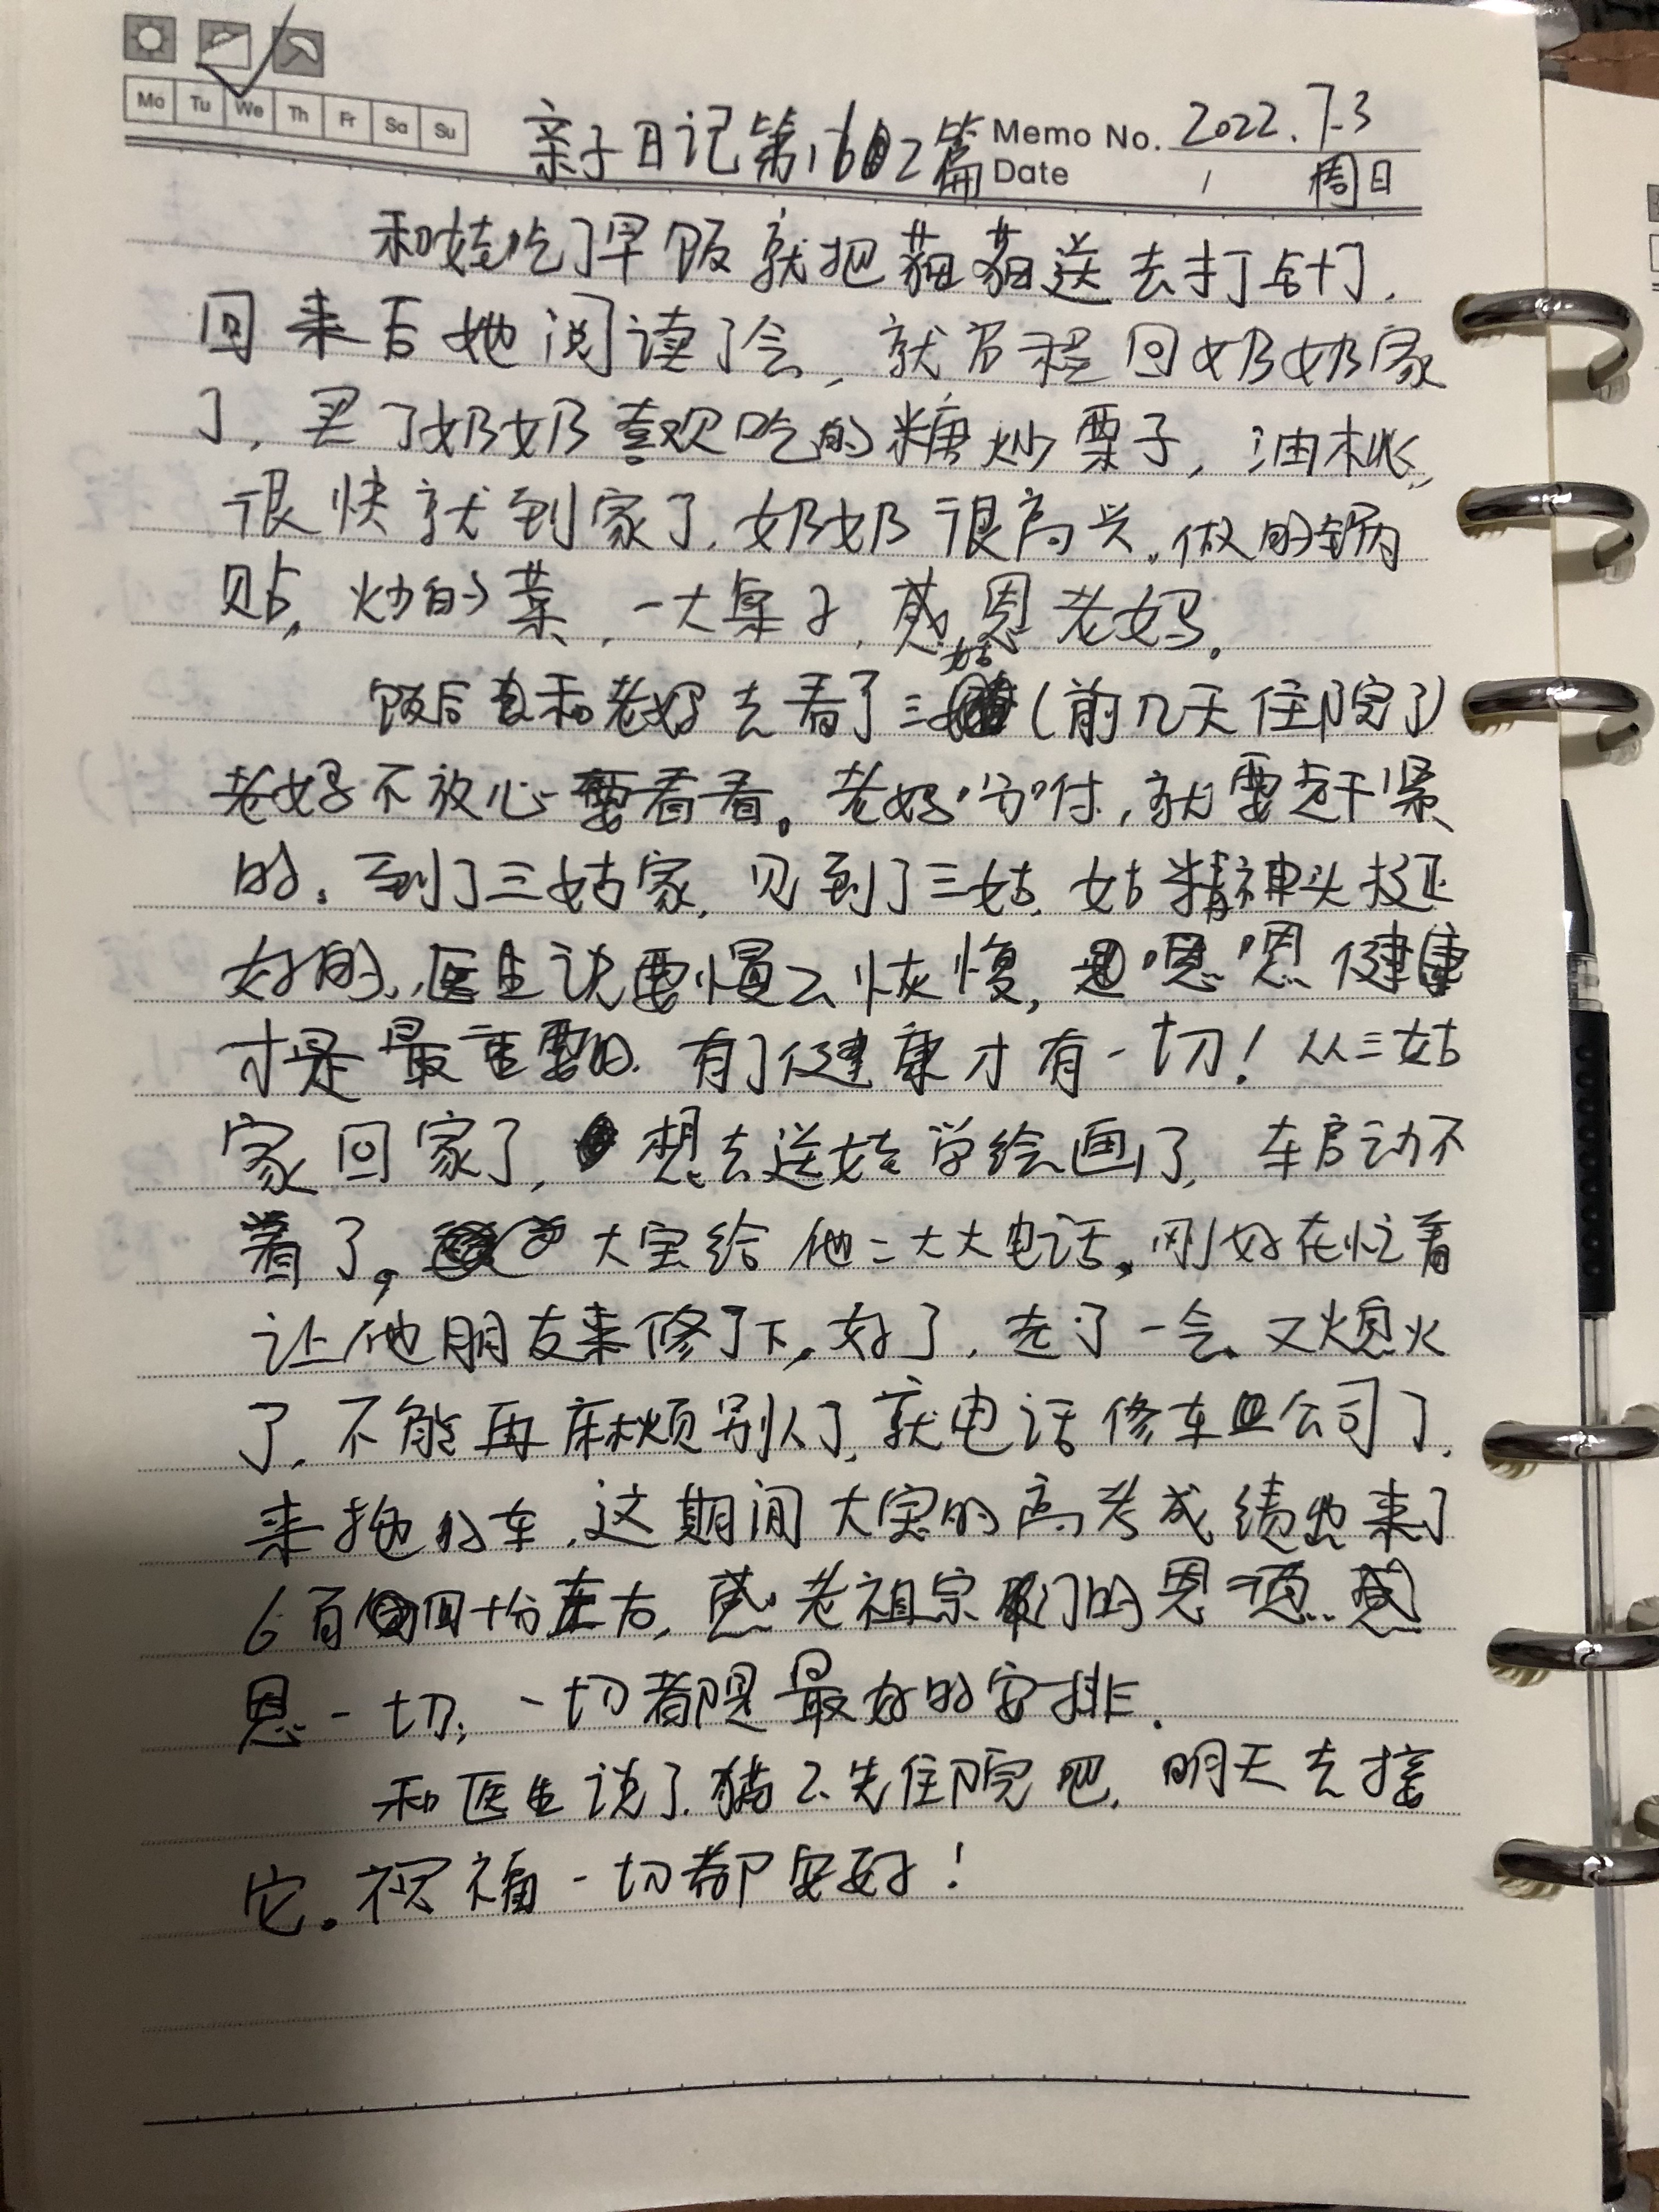 Mo Tu We Th Fr Sa Su
亲子日记第1602篇 Memo No. 2022.7.3
Date 周日
和娃吃了早饭就把猫猫送去打针了,
回来后她阅读了会,就启程回奶奶家
了,买了奶奶喜欢吃的糖炒栗子,油桃,
很快就到家了,奶奶很高兴,做的锅
贴,炒的菜,一大桌子,感恩老妈。
饭后和老妈去看了三姑(前几天住院了)
老妈不放心要看看。老妈吩咐,就要赶紧
的。到了三姑家,见到了三姑,姑精神头挺
好的,医生说要慢么恢复,是嗯嗯健康
才是最重要的.有了健康才有一切!从三姑
家回家了,想去送娃学绘画了,车启动不
着了,大宝给他二大大电话,刚好在忙着
让他朋友来修了下,好了,走了一会,又熄火
了,不能再麻烦别人了,就电话修车公司了,
来拖的车,这期间大宝的高考成绩出来了
6百四十份左右,感老祖宗们的恩德,感
恩一切,一切都是最好的安排.
和医生说了,猫么先住院吧,明天去接
它。祝福一切都安好!